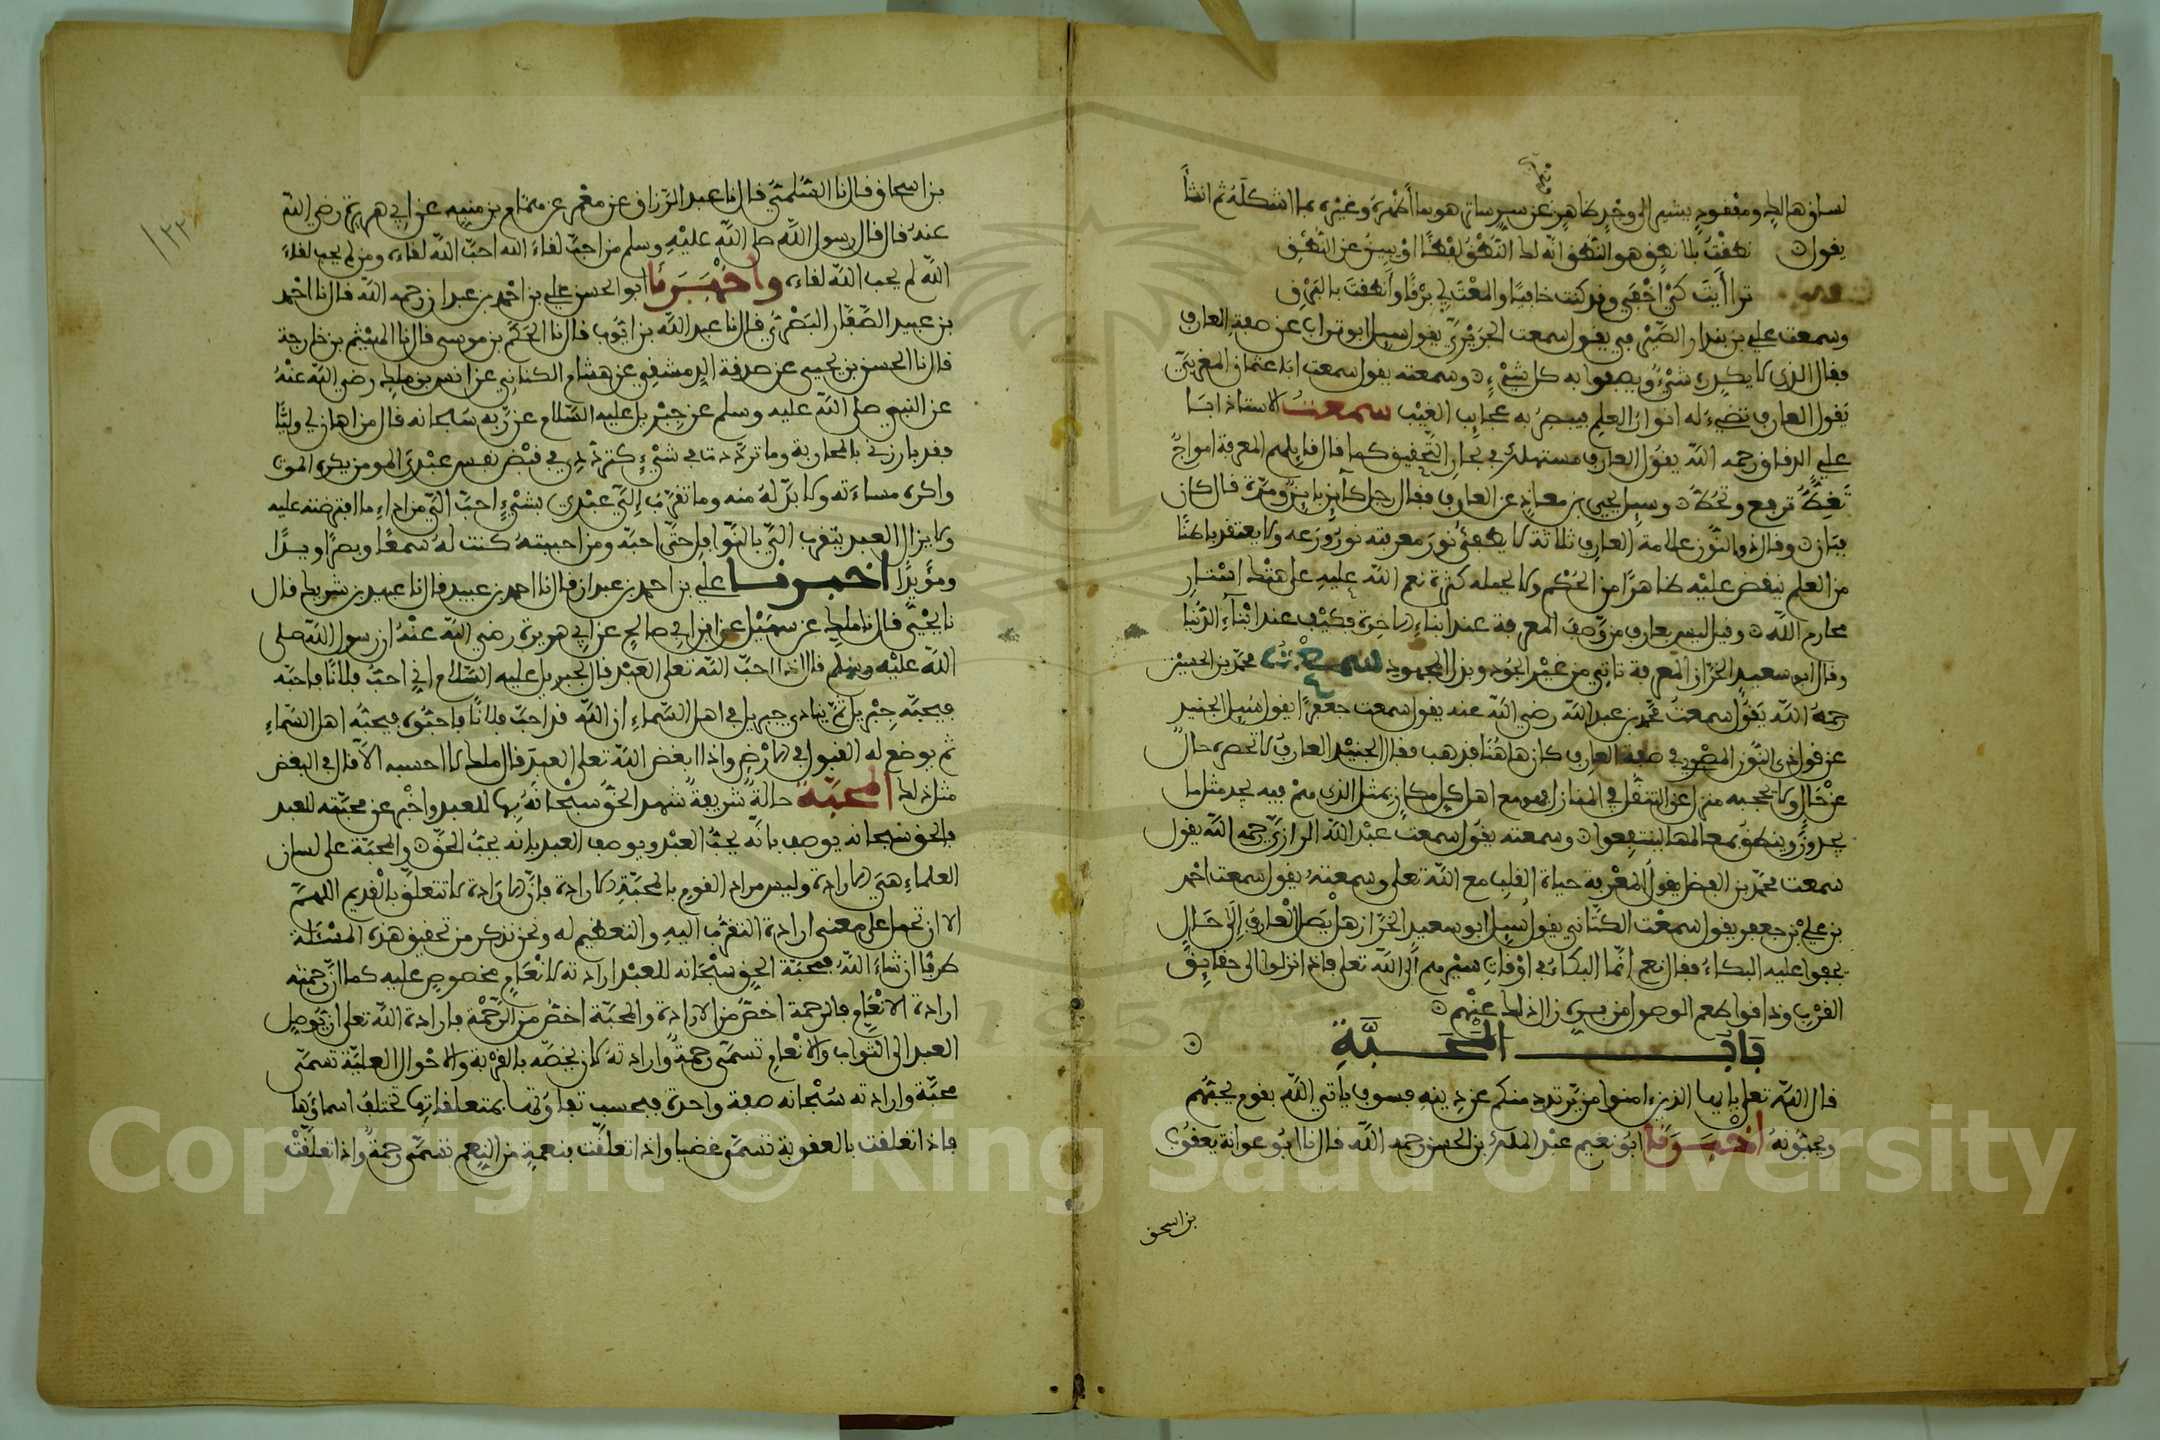 لسان هالك ومفقود يشير الى وجد ظاهر عن سر ساتر هو بما أظهره وغيره بما اشكله ثم انشأ
يقول نطقت بلا نطق هو النطق انه لك النطق لفظا او يبين عن النطق
تراأيت كي اخفى وقد كنت خافيا والمعت لي برقا وأنطقت بالبرق
وسمعت علي بن بندار الصيرفي يقول سمعت الجريري يقول سيل ابو تراب عن صفة العارف
فقال الذي لا يكدره شيء ويصفوا به كل شيء وسمعته يقول سمعت ابا عثمان المغربي
يقول العارف تضيء له انوار العلم فيبصر به عجايب الغيب سمعت الاستاذ ابا
علي الدقاق رحمه الله يقول العارف مستهلك في بحار التحقيق كما قال قايلهم المعرفة امواج
تغط ترفع وتحط وسيل يحيى بن معاذ عن العارف فقال رجل كاين باين ومرة قال كان
فبان وقال ذو النون علامة العارف ثلاثة لا يطفئ نور معرفته نور ورعه ولا يعتقد باطنا
من العلم ينقض عليه ظاهرا من الحكم ولا يحمله كثرة نعم الله عليه على هتك استار
محارم الله وقيل ليس بعارف من وصف المعرفة عند ابناء الاخرة فكيف عند ابناء الدنيا
وقال ابو سعيد الخراز المعرفة تاتي من عين الجود وبذل المجهود سمعت محمد بن الحسين
رحمه الله يقول سمعت محمد بن عبد الله رضي الله عنه يقول سمعت جعفرا يقول سيل الجنيد
عن قول ذي النون المصري في صفة العارف كان هاهنا فذهب فقال الجنيد العارف لا تحصره حال
عن حال ولا يحجبه منزل عن التنقل في المنازل فهو مع اهل كل مكان بمثل الذي هم فيه يجد مثل ما
يجدون وينطق بمعالمها لينتفعوا وسمعته يقول سمعت عبد الله الرازي رحمه الله يقول
سمعت محمد بن الفضل يقول المعرفة حياة القلب مع الله تعلى وسمعته يقول سمعت احمد
بن علي بن جعفر يقول سمعت الكتاني يقول سيل ابو سعيد الخراز هل يصل العارف إلى حال
يجفوا عليه البكاء فقال نعم انما البكاء في اوقات سيرهم الى الله تعلى فاذا نزلوا الى حقايق
القرب وذاقوا طعم الوصول من بره زال ذلك عنهم
باب المحبة
قال الله تعلى يايها الذين امنوا من يرتدد منكم عن دينه فسوف ياتي الله بقوم يحبهم
ويحبونه اخبرنا ابو نعيم عبد الملك بن الحسن رحمه الله قال انا ابو عوانة يعقوب
بن اسحق
بن اسحاق قال نا السلمي قال نا عبد الرزاق عن معمر عن همام بن منبه عن ابي هريرة رضي الله
عنه قال قال رسول الله صلى الله عليه وسلم من احب لقاء الله احب الله لقاءه ومن لم يحب لقاء
الله لم يحب الله لقاءه واخبرنا ابو الحسن علي بن احمد بن عبدان رحمه الله قال نا احمد
بن عبيد الصفار البصري قال نا عبد الله بن ايوب قال نا الحكم بن موسى قال نا الهيثم بن خارجة
قال نا الحسن بن يحيى عن صدقة الدمشقي عن هشام الكناني عن انس بن ملك رضي الله عنه
عن النبي صلى الله عليه وسلم عن جبريل عليه السلام عن ربه سبحانه قال من اهان لي وليا
فقد بارزني بالمحاربة وما ترددت في شيء كترددي في قبض نفس عبدي المومن يكره الموت
واكره مساءته ولا بد له منه وما تقرب إلي عبدي بشيء احب الي من اداء ما افترضته عليه
ولا يزال العبد يتقرب الي بالنوافل حتى احبه ومن احببته كنت له سمعا وبصرا ويدا
ومؤيدا اخبرنا علي بن احمد بن عبدان قال نا احمد بن عبيد قال نا عبيد بن شريك قال
نا يحيى قال نا ملك عن سهيل عن ابن ابي صالح عن ابي هريرة رضي الله عنه ان رسول الله صلى
الله عليه وسلم قال اذا احب الله تعلى العبد قال لجبريل عليه السلام اني احب فلانا فاحبه
فيحبه جبريل ثم ينادي جبريل في اهل السماء ان الله قد احب فلانا فاحبوه فيحبه اهل السماء
ثم يوضع له القبول في الارض واذا ابغض الله تعلى العبد قال ملك لا احسبه الا قال في البغض
مثل ذلك المحبة حالة شريفة شهد الحق سبحانه بها للعبد واخبر عن محبته للعبد
فالحق سبحانه يوصف بانه يحب العبد ويوصف العبد بانه يحب الحق والمحبة على لسان
العلماء هي الارادة وليس مراد القوم بالمحبة الارادة فإن الارادة لا تتعلق بالقديم اللهم
الا ان تحمل على معنى ارادة التقرب اليه والتعظيم له ونحن نذكر من تحقيق هذه المسئلة
طرفا ان شاء الله فمحبة الحق سبحانه للعبد ارادته لانعام مخصوص عليه كما ان رحمته
ارادة الانعام فالرحمة اخص من الارادة والمحبة اخص من الرحمة فارادة الله تعلى ان يوصل
العبد الى الثواب والانعام تسمى رحمة وارادته لان يخصه بالقربة والاحوال العلية تسمى
محبة وارادته سبحانه صفة واحدة فبحسب تفاوت متعلقاتها تختلف اسماؤها
فاذا تعلقت بالعقوبة تسمى غضبا واذا تعلقت بنعمة من النعم تسمى رحمة واذا تعلقت
١٢٢
Copyright © King Saud University